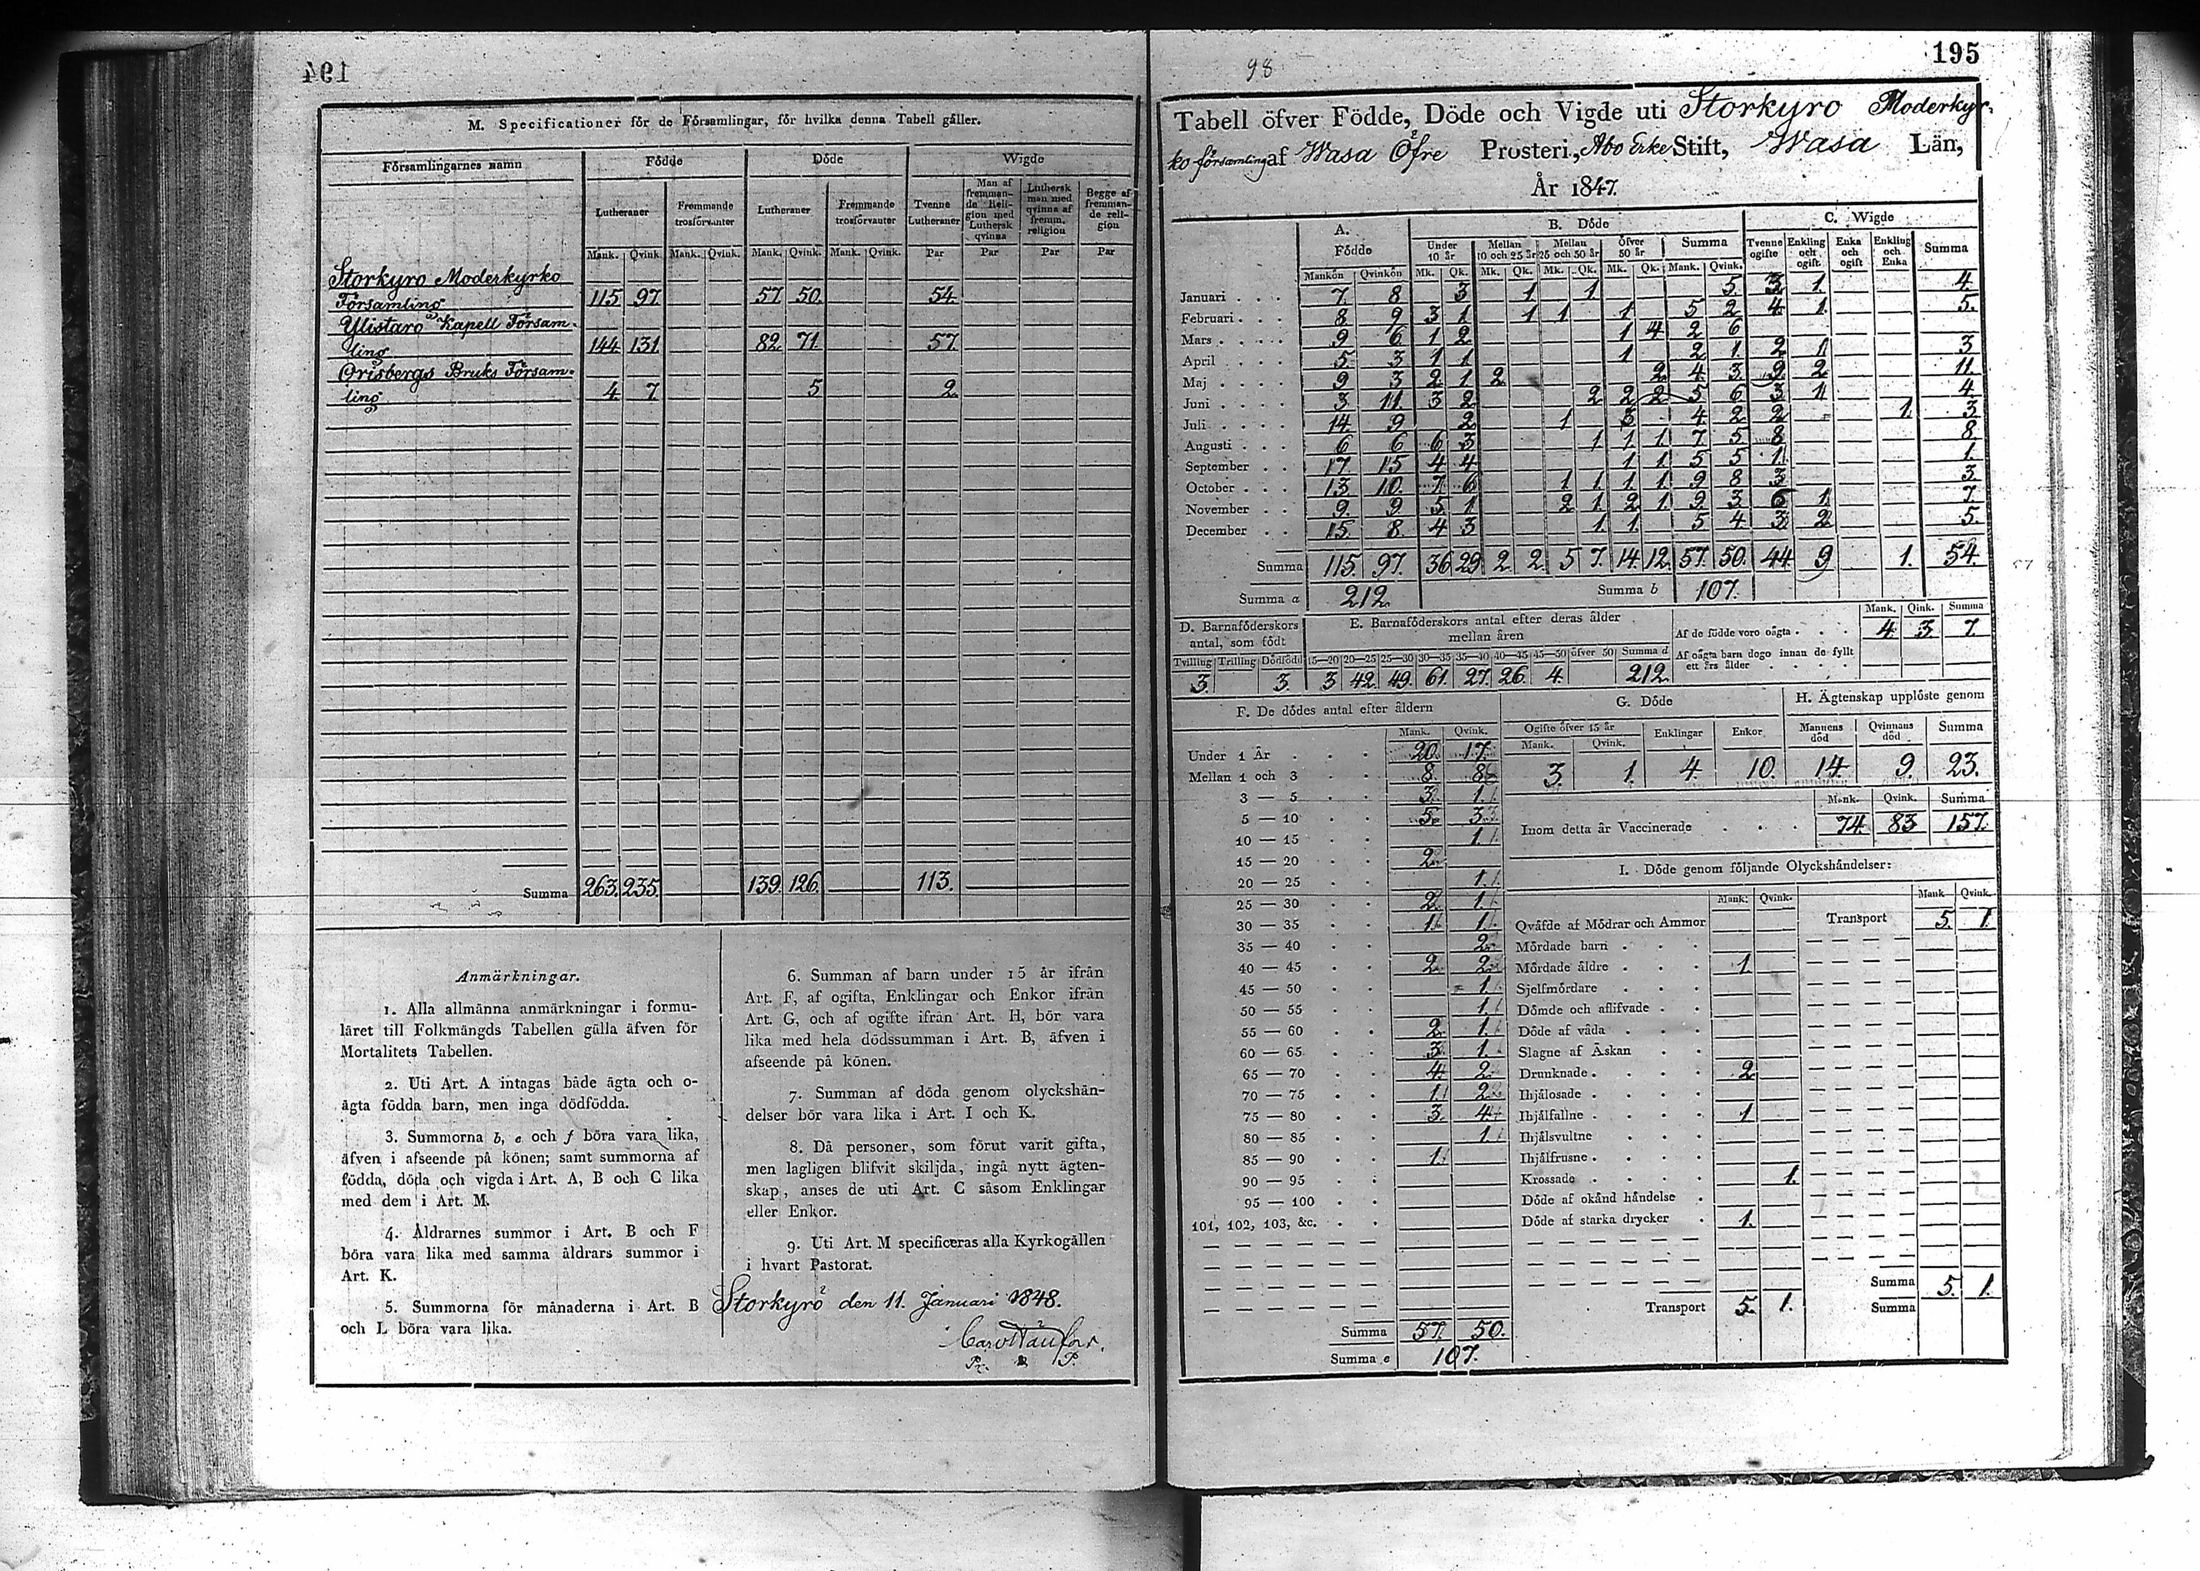 194
M. Specificationer för de Församlingar, för hvilka denna Tabell gäller.
Församlingarnes namn Födde Döde Wigde
Lutheraner Fremmande trosförvanter Lutheraner Fremmande trosförvanter Tvenne Lutheraner Man af fremmande Religion med Luthersk qvinna Luthersk man med qvinna af fremm. religion Begge af fremmande religion
Mank. Qvink. Mank. Qvink. Mank. Qvink. Mank. Qvink. Par Par Par Par
Storkyro Moderkyrko
Församling 115 97 57 50 54
Ylistaro Kapell Försam-
ling 144 131 82 71 57
Orisbergs Bruks Försam-
ling 4 7 5 2
Summa 263 235 139 126 113
Anmärkningar.
1. Alla allmänna anmärkningar i formu-
läret till Folkmängds Tabellen gälla äfven för
Mortalitets Tabellen.
2. Uti Art. A intagas både ägta och o-
ägta födda barn, men inga dödfödda.
3. Summorna b, e och f böra vara lika,
äfven i afseende på könen; samt summorna af
födda, döda och vigda i Art. A, B och C lika
med dem i Art. M.
4. Åldrarnes summor i Art. B och F
böra vara lika med samma åldrars summor i
Art. K.
5. Summorna för månaderna i Art. B
och L böra vara lika.
6. Summan af barn under 15 år ifrån
Art. F, af ogifta, Enklingar och Enkor ifrån
Art. G, och af ogifte ifrån Art. H, bör vara
lika med hela dödssumman i Art. B, äfven i
afseende på könen.
7. Summan af döda genom olyckshän-
delser bör vara lika i Art. I och K.
8. Då personer, som förut varit gifta,
men lagligen blifvit skiljda, ingå nytt ägten-
skap, anses de uti Art. C såsom Enklingar
eller Enkor.
9. Uti Art. M specificeras alla Kyrkogällen
i hvart Pastorat.
Storkyrö den 11. Januari 1848.
98
195
Tabell öfver Födde, Döde och Vigde uti Storkyro Moderkyr-
ko församling af Wasa Öfre Prosteri, Åbo Erke Stift, Wasa Län,
År 1847.
A. Födde B. Döde C. Wigde
Under 10 år Mellan 10 och 25 år Mellan 25 och 50 år Öfver 50 år Summa Tvenne ogifte Enkling och ogift Enka och ogift Enkling och Enka Summa
Mankön Qvinkön Mk. Qk. Mk. Qk. Mk. Qk. Mk. Qk. Mank. Qvink.
Januari 7 8 3 1 1 5 3 1 4
Februari 8 9 3 1 1 1 1 5 2 4 1 5
Mars 9 6 1 2 1 4 2 6
April 5 3 1 1 1 2 1 2 1 3
Maj 9 3 2 1 2 2 4 3 9 2 11
Juni 3 11 3 2 2 2 2 5 6 3 1 4
Juli 14 9 2 1 3 4 2 2 1 3
Augusti 6 6 6 3 1 1 1 7 5 8 8
September 17 15 4 4 1 1 5 5 1 1
October 13 10 7 6 1 1 1 1 9 8 3 3
November 9 9 5 1 2 1 2 1 9 3 6 1 7
December 15 8 4 3 1 1 5 4 3 2 5
Summa 115 97 36 29 2 2 5 7 14 12 57 50 44 9 1 54
Summa a 212 Summa b 107
D. Barnaföderskors antal, som födt
Tvilling Trilling Dödfödd
3 3
E. Barnaföderskors antal efter deras ålder mellan åren
15—20 20—25 25—30 30—35 35—40 40—45 45—50 öfver 50 Summa d
3 42 49 61 27 26 4 212
Mank. Qink. Summa
Af de födde voro oägta 4 3 7
Af oägta barn dogo innan de fyllt
ett års ålder
F. De dödes antal efter åldern
Mank. Qvink.
Under 1 År 20 17
Mellan 1 och 3 8 8
3 — 5 3 1
5 — 10 5 3
10 — 15 1
15 — 20 2
20 — 25 1
25 — 30 2 1
30 — 35 1 1
35 — 40 2
40 — 45 2 2
45 — 50 1
50 — 55 1
55 — 60 2 1
60 — 65 3 1
65 — 70 4 2
70 — 75 1 2
75 — 80 3 4
80 — 85 1
85 — 90 1
90 — 95
95 — 100
101, 102, 103, &c.
Summa 57 50
Summa e 107
G. Döde
Ogifte öfver 15 år Enklingar Enkor
Mank. Qvink.
3 1 4 10
H. Ägtenskap upplöste genom
Mannens död Qvinnans död Summa
14 9 23
Mank. Qvink. Summa
Inom detta år Vaccinerade 74 83 157
I. Döde genom följande Olyckshändelser:
Mank. Qvink. Mank. Qvink.
Qväfde af Mödrar och Ammor Transport 5 1
Mördade barn
Mördade äldre 1
Sjelfmördare
Dömde och aflifvade
Döde af våda
Slagne af Åskan
Drunknade 2
Ihjälosade
Ihjälfallne 1
Ihjälsvultne
Ihjälfrusne
Krossade 1
Döde af okänd händelse
Döde af starka drycker 1
Summa 5 1
Transport 5 1 Summa